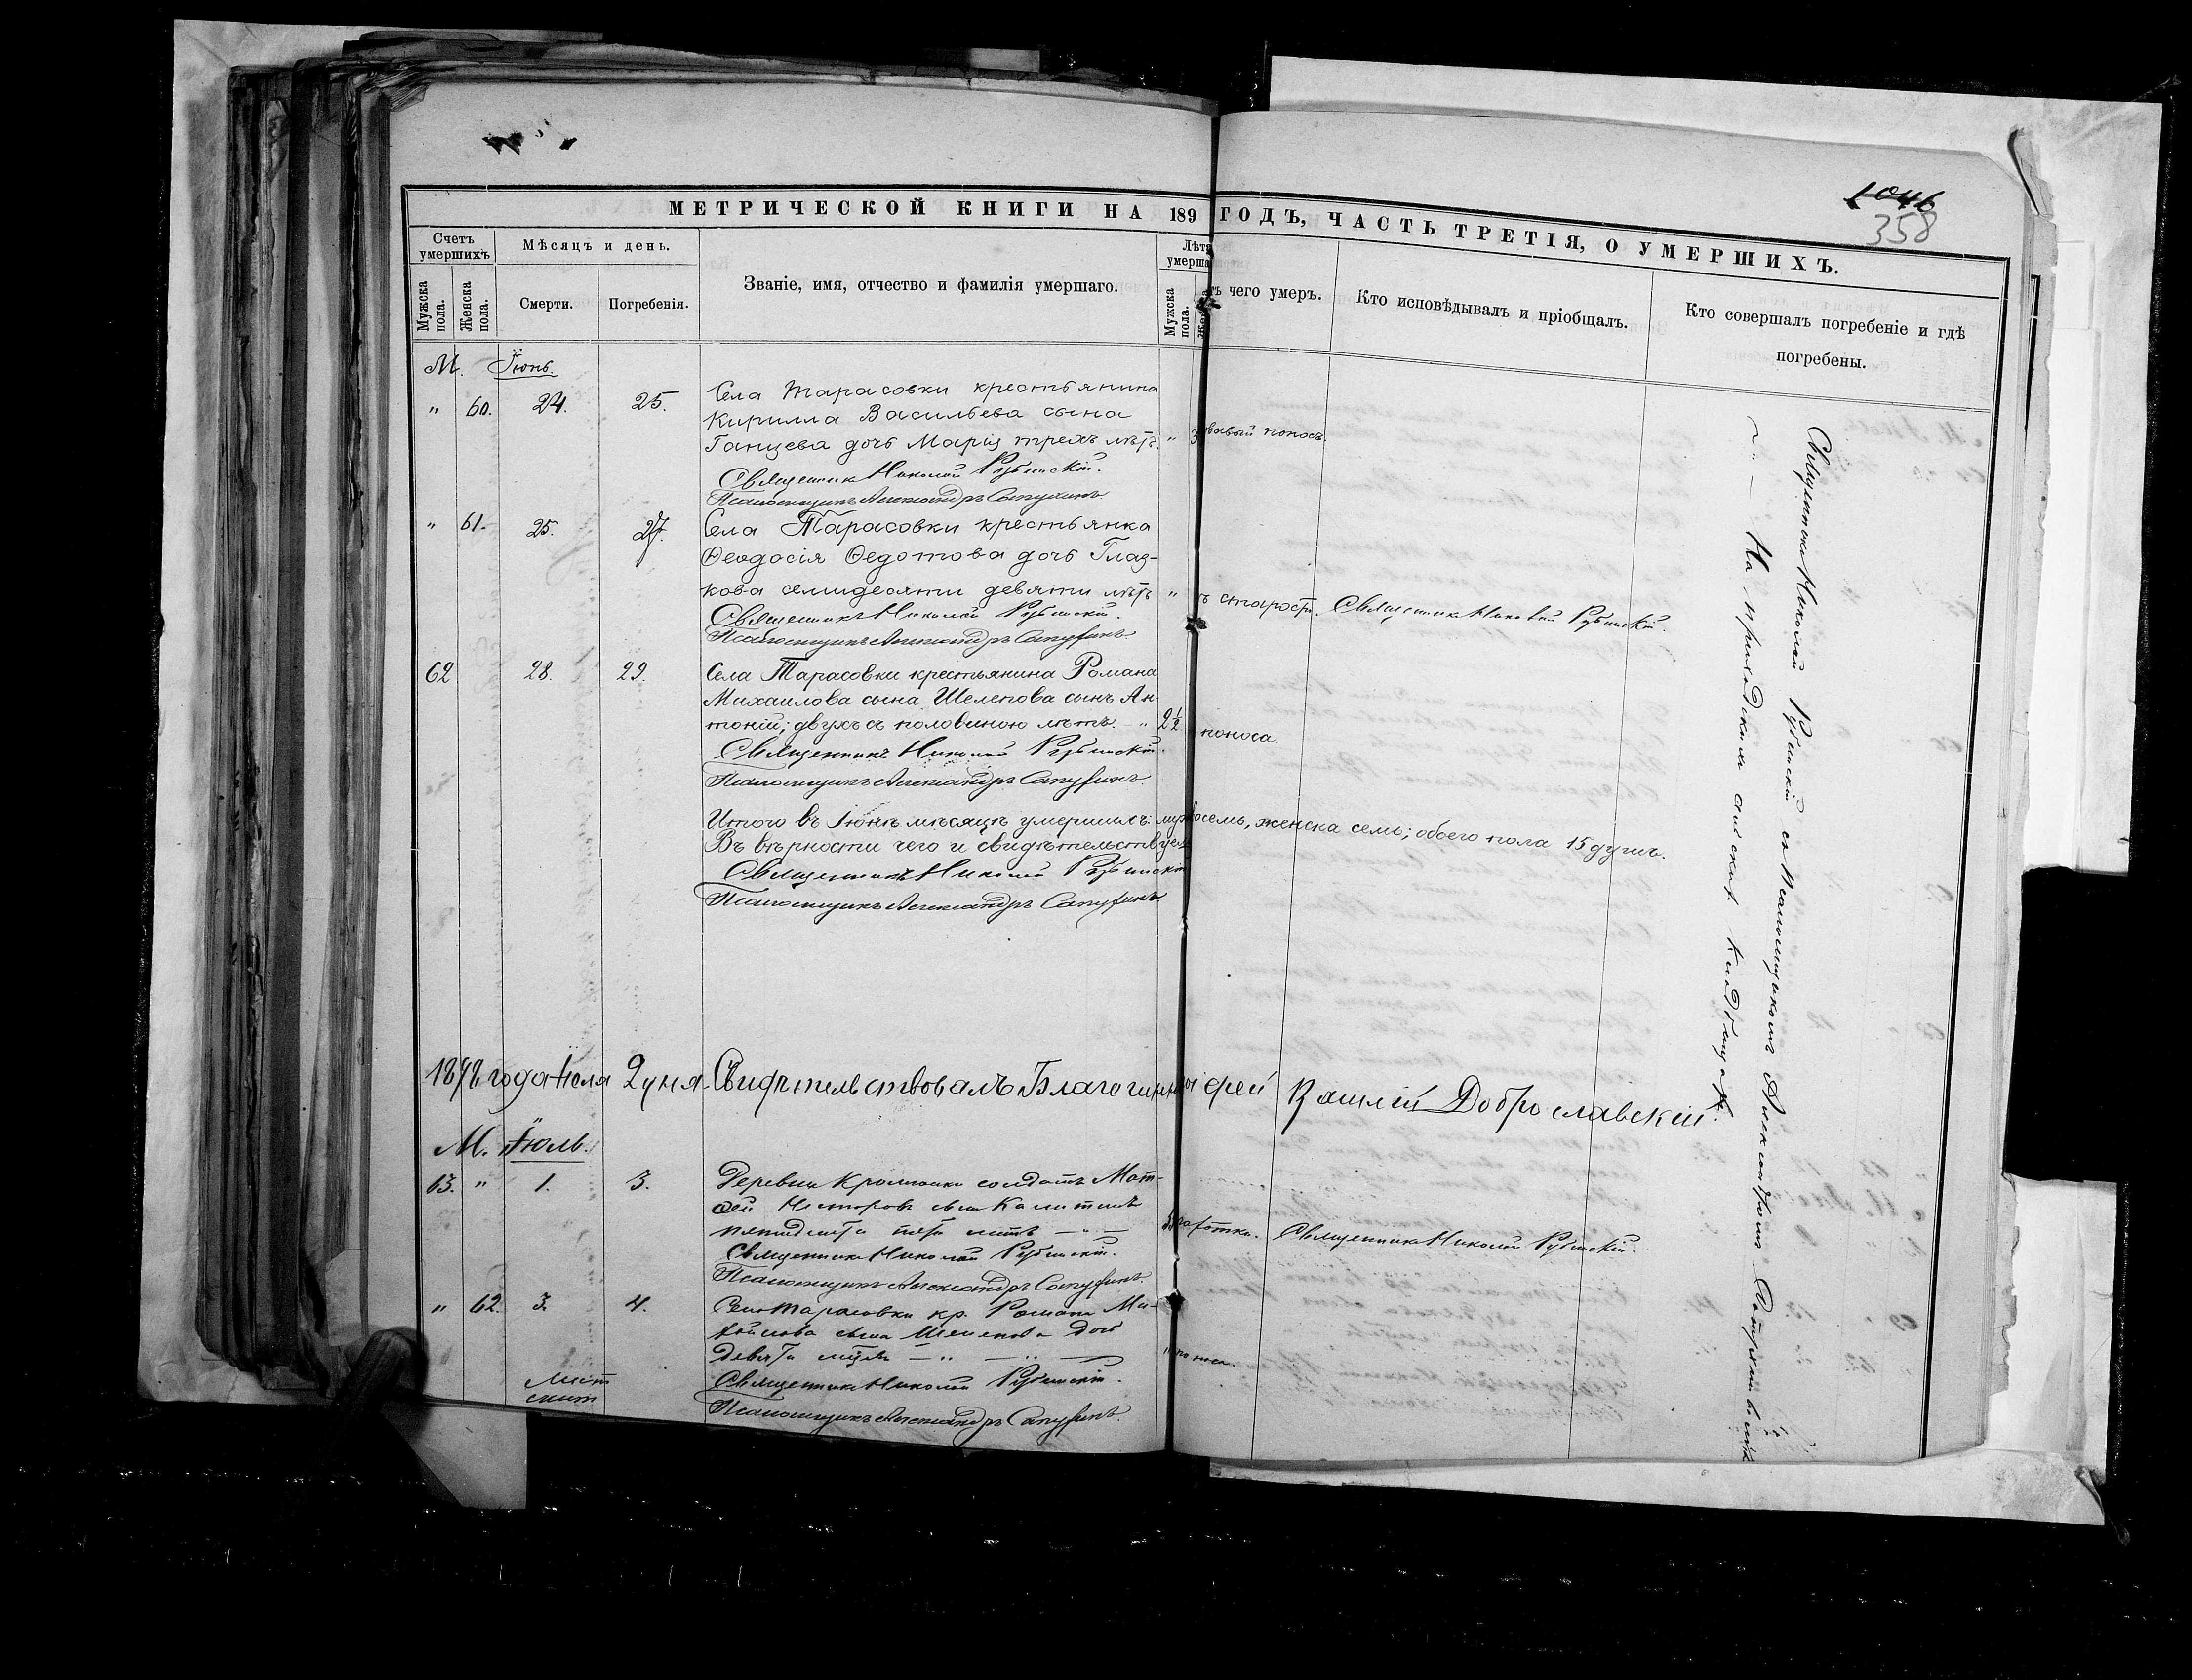 1046
358
МЕТРИЧЕСКОЙ КНИГИ НА 189 ГОДЪ, ЧАСТЬ ТРЕТІЯ, О УМЕРШИХЪ.
Счетъ умершихъ
Мѣсяцъ и день.
Званіе, имя, отчество и фамилія умершаго.
Лѣта умерша
ъ чего умеръ.
Кто исповѣдывалъ и пріобщалъ.
Кто совершалъ погребеніе и гдѣ
погребены.
Мужска пола.
Женска пола.
Смерти.
Погребенія.
Мужска пола.
М. Іюнь.
" 60. 24. 25. Села Тарасовки крестьянина
Кирилла Васильева сына
Ганцева дочь Марія трехъ лѣтъ. " 3 вавый поносъ.
Священникъ Николай Рубинскій.
Псаломщикъ Александръ
" 61. 25. 27. Села Тарасовки крестьянка
Ѳеодосія Ѳедотова дочь Глаз-
кова семидесяти девяти лѣтъ " ъ старости. Священникъ Николай Рубинскій.
Священникъ Николай Рубинскій.
Псаломщикъ Александръ
62 28. 29. Села Тарасовки крестьянина Романа
Михаилова сына Шелепова сынъ Ан-
тоній; двухъ съ половиною лѣтъ. " 2½ поноса.
Священникъ Николай Рубинскій.
Псаломщикъ Александръ
Итого въ Іюнѣ мѣсяцѣ умершихъ: муж восемь, женска семь; обоего пола 15 душъ.
Въ вѣрности чего и свидѣтельствуемъ
Священникъ Николай Рубинскій
Псаломщикъ Александръ
года Іюля 2 дня. Свидѣтельствовалъ Благочинный ерей Василій Доброславскій.
М. Іюль.
63. " 1. 3. Деревни солдатъ Мат-
ѳей сынъ
пятидесяти пяти лѣтъ Священникъ Николай Рубинскій.
Священникъ Николай Рубинскій.
Псаломщикъ Александръ
" 62. 3. 4. Села Тарасовки кр. Романа Ми-
хайлова сына Шелепова дочь
девяти " поноса.
Священникъ Николай Рубинскій.
Псаломщикъ Александръ
Священникъ Николай Рубинскій съ Псаломщикомъ Александромъ
На приходскомъ кладбищѣ.